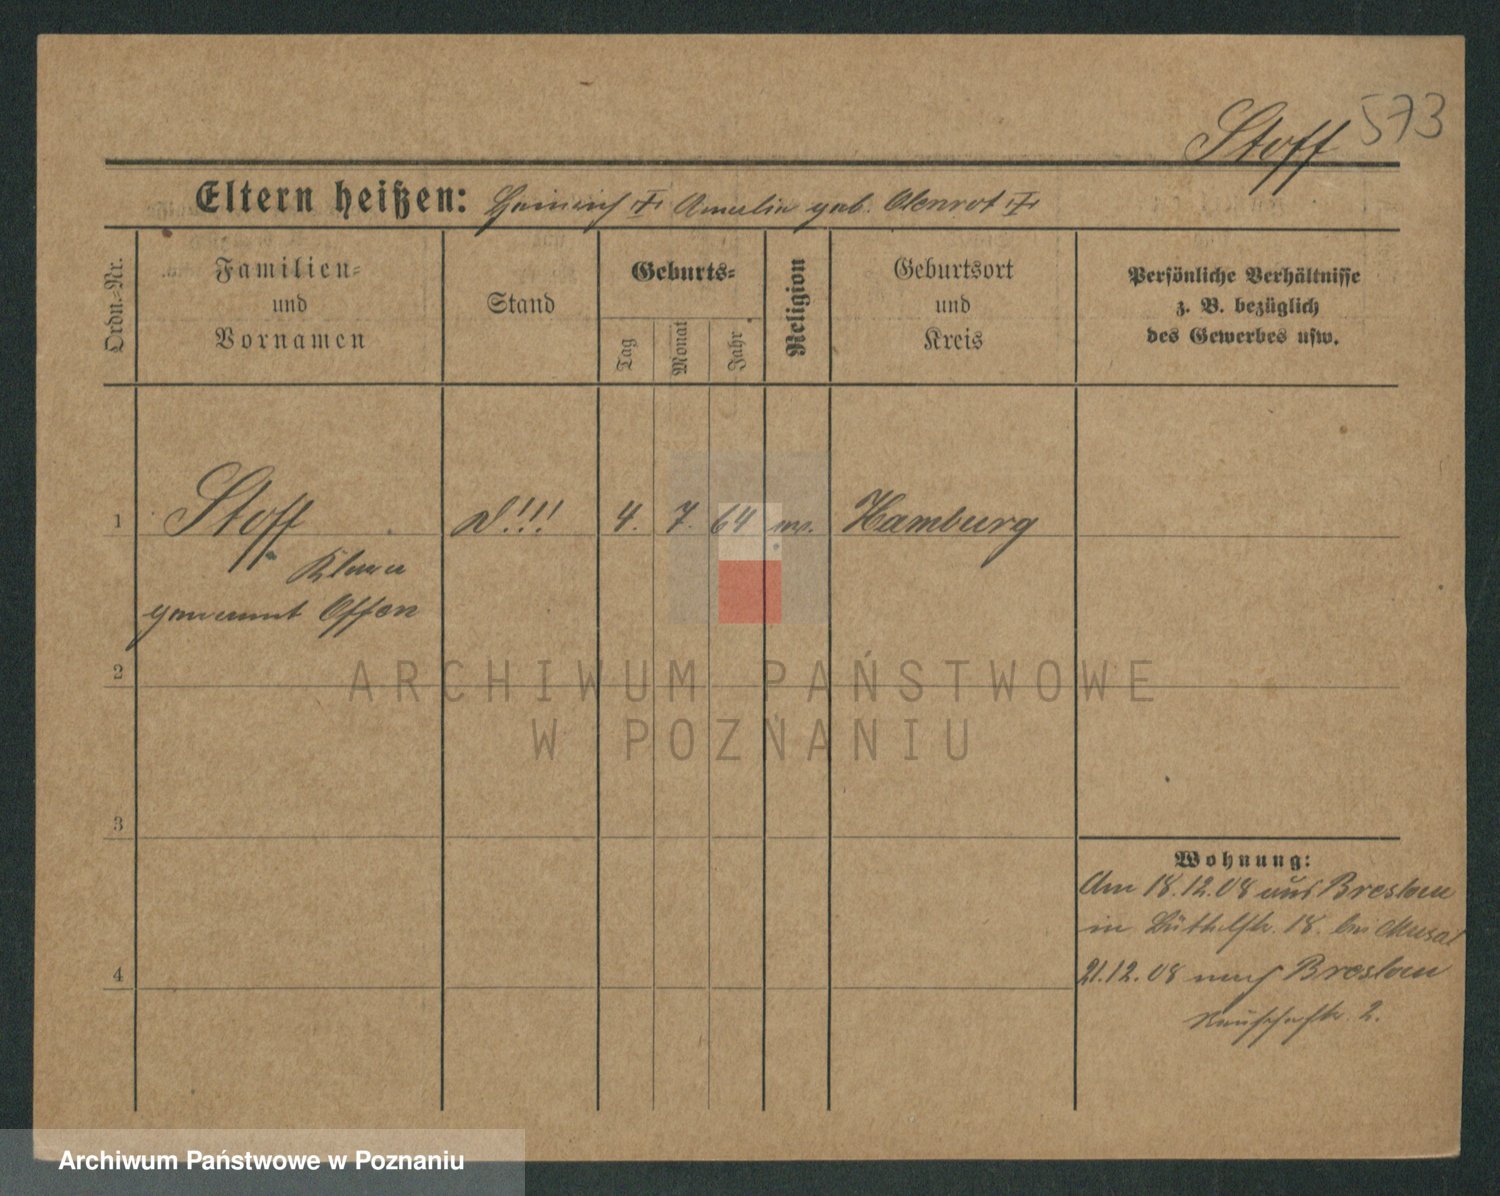 Stoff 573
Eltern heißen: Heinrich Amalie geb. Olenrot
Ordn.-Nr.
Familien-
und
Vornamen
Stand
Geburts-
Tag
Monat
Jahr
Religion
Geburtsort
und
Kreis
Persönliche Verhältnisse
z. B. bezüglich
des Gewerbes usw.
1 Stoff !!! 4. 7. 64 Hamburg
Klara
genannt Offen
2
3
4
Wohnung:
Am 18.12.08 aus Breslau
in 18. bei Musal
21.12.08 nach Breslau
2.
ARCHIWUM PAŃSTWOWE
W POZNANIU
Archiwum Państwowe w Poznaniu